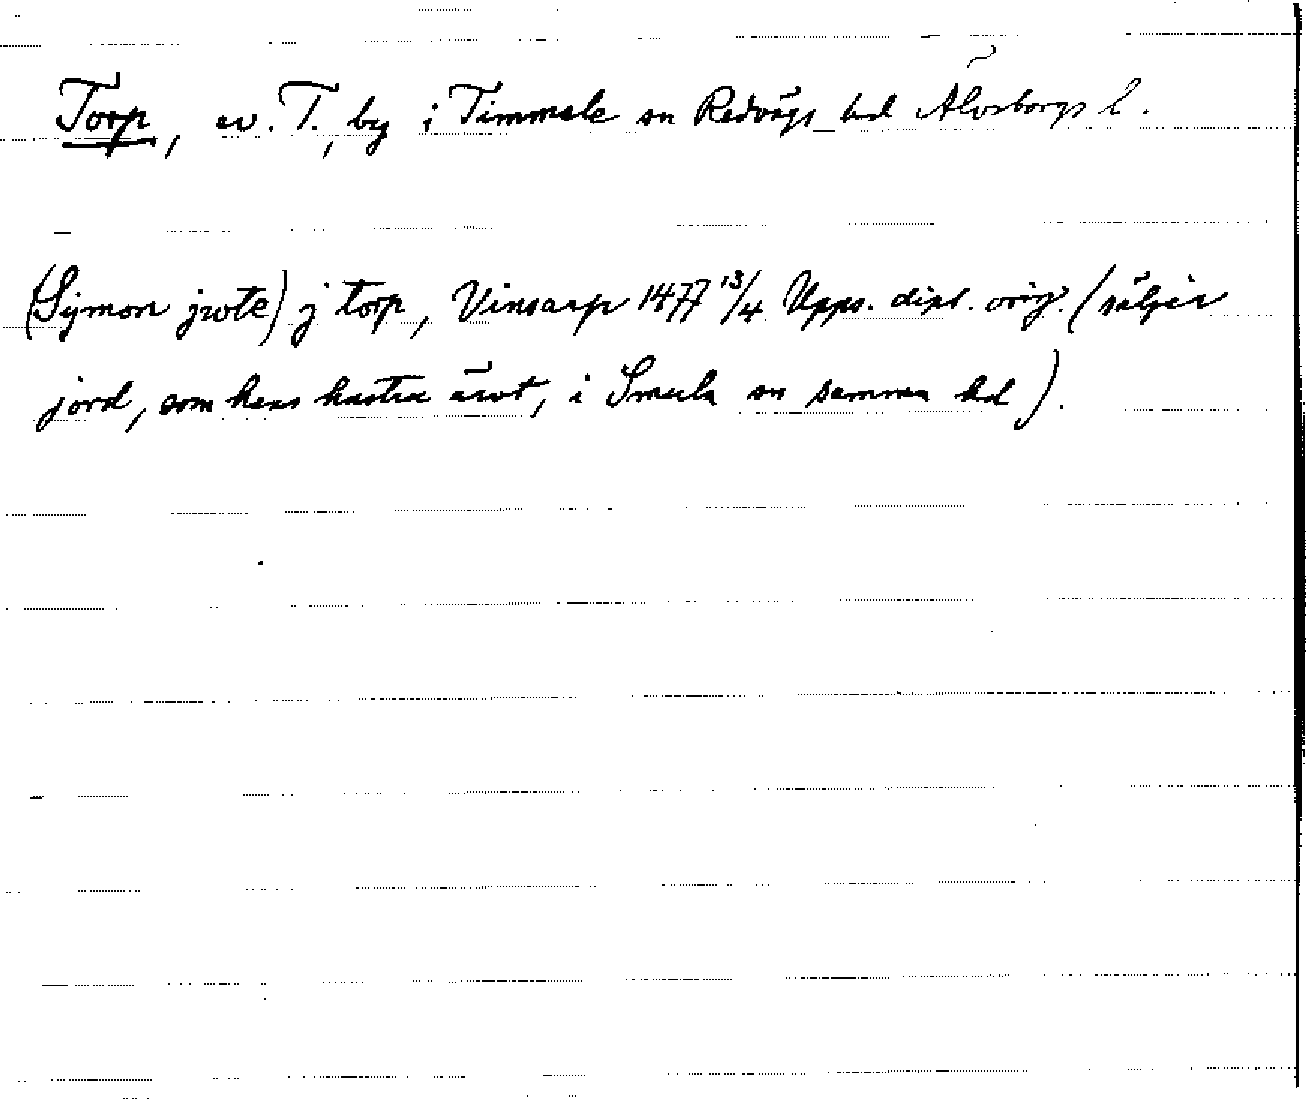 Torp, ev. T., by i Timmele sn Redvägs hd Älvsborgs l.
(Symon jwte) j torp, Vinsarp 1477 13/4 Upps. dipl. orig. (säljer
jord, som hans hustru ärvt, i Smula sn samma hd).